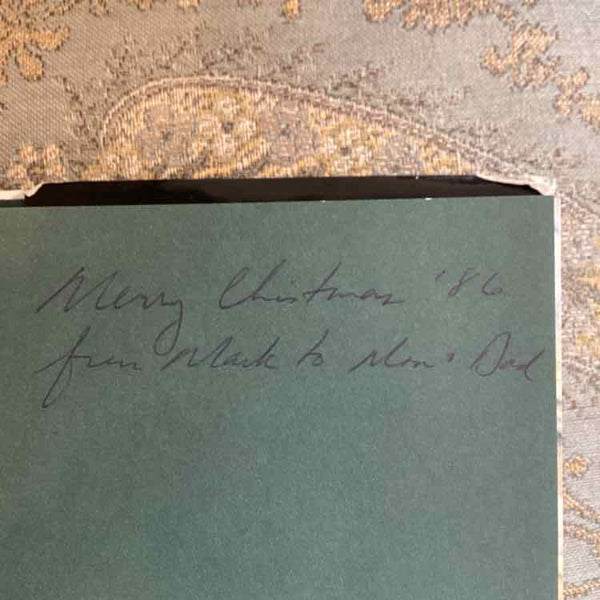 Merry Christmas '86
from Mark to Mom & Dad